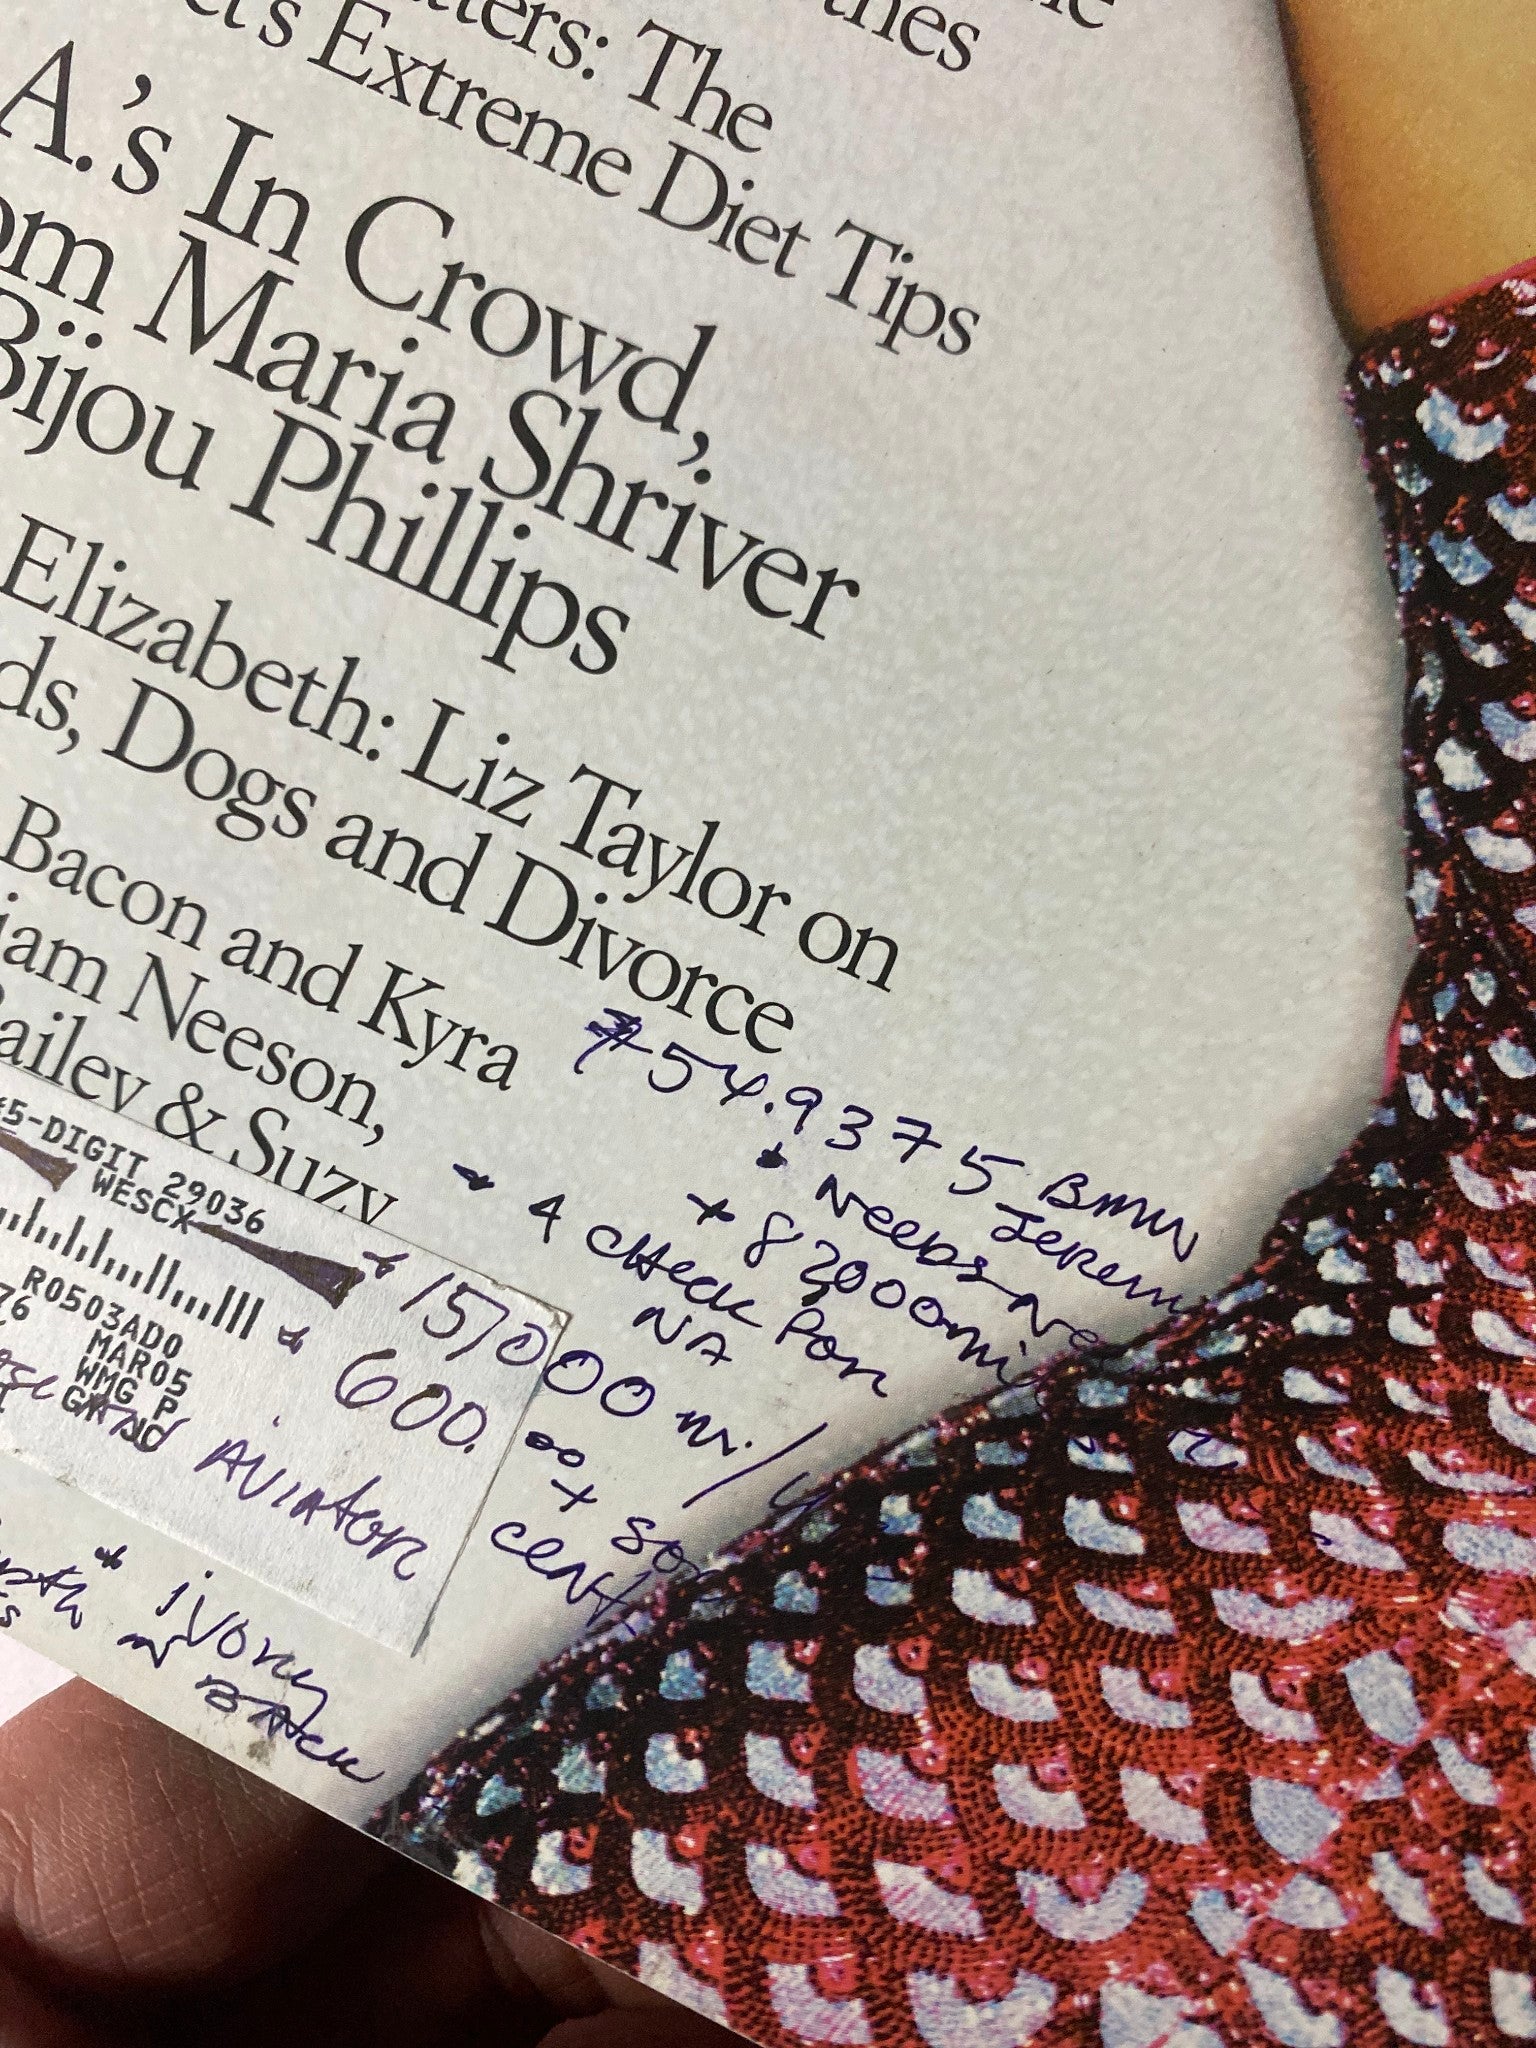 The
Extreme Diet Tips
A.'s In Crowd,
om Maria Shriver
Bijou Phillips
Elizabeth: Liz Taylor on
ds, Dogs and Divorce
Bacon and Kyra
iam Neeson,
ailey & Suzy
5-DIGIT 29036
WESCX
R0503ADO
76 MAR05
WMG P
54.9375 BMW
Jerem
Needs
8200 mi
4 Check For
NA
15,000 mi/
600.00 +
Cent
Aviator
ivory
in Back